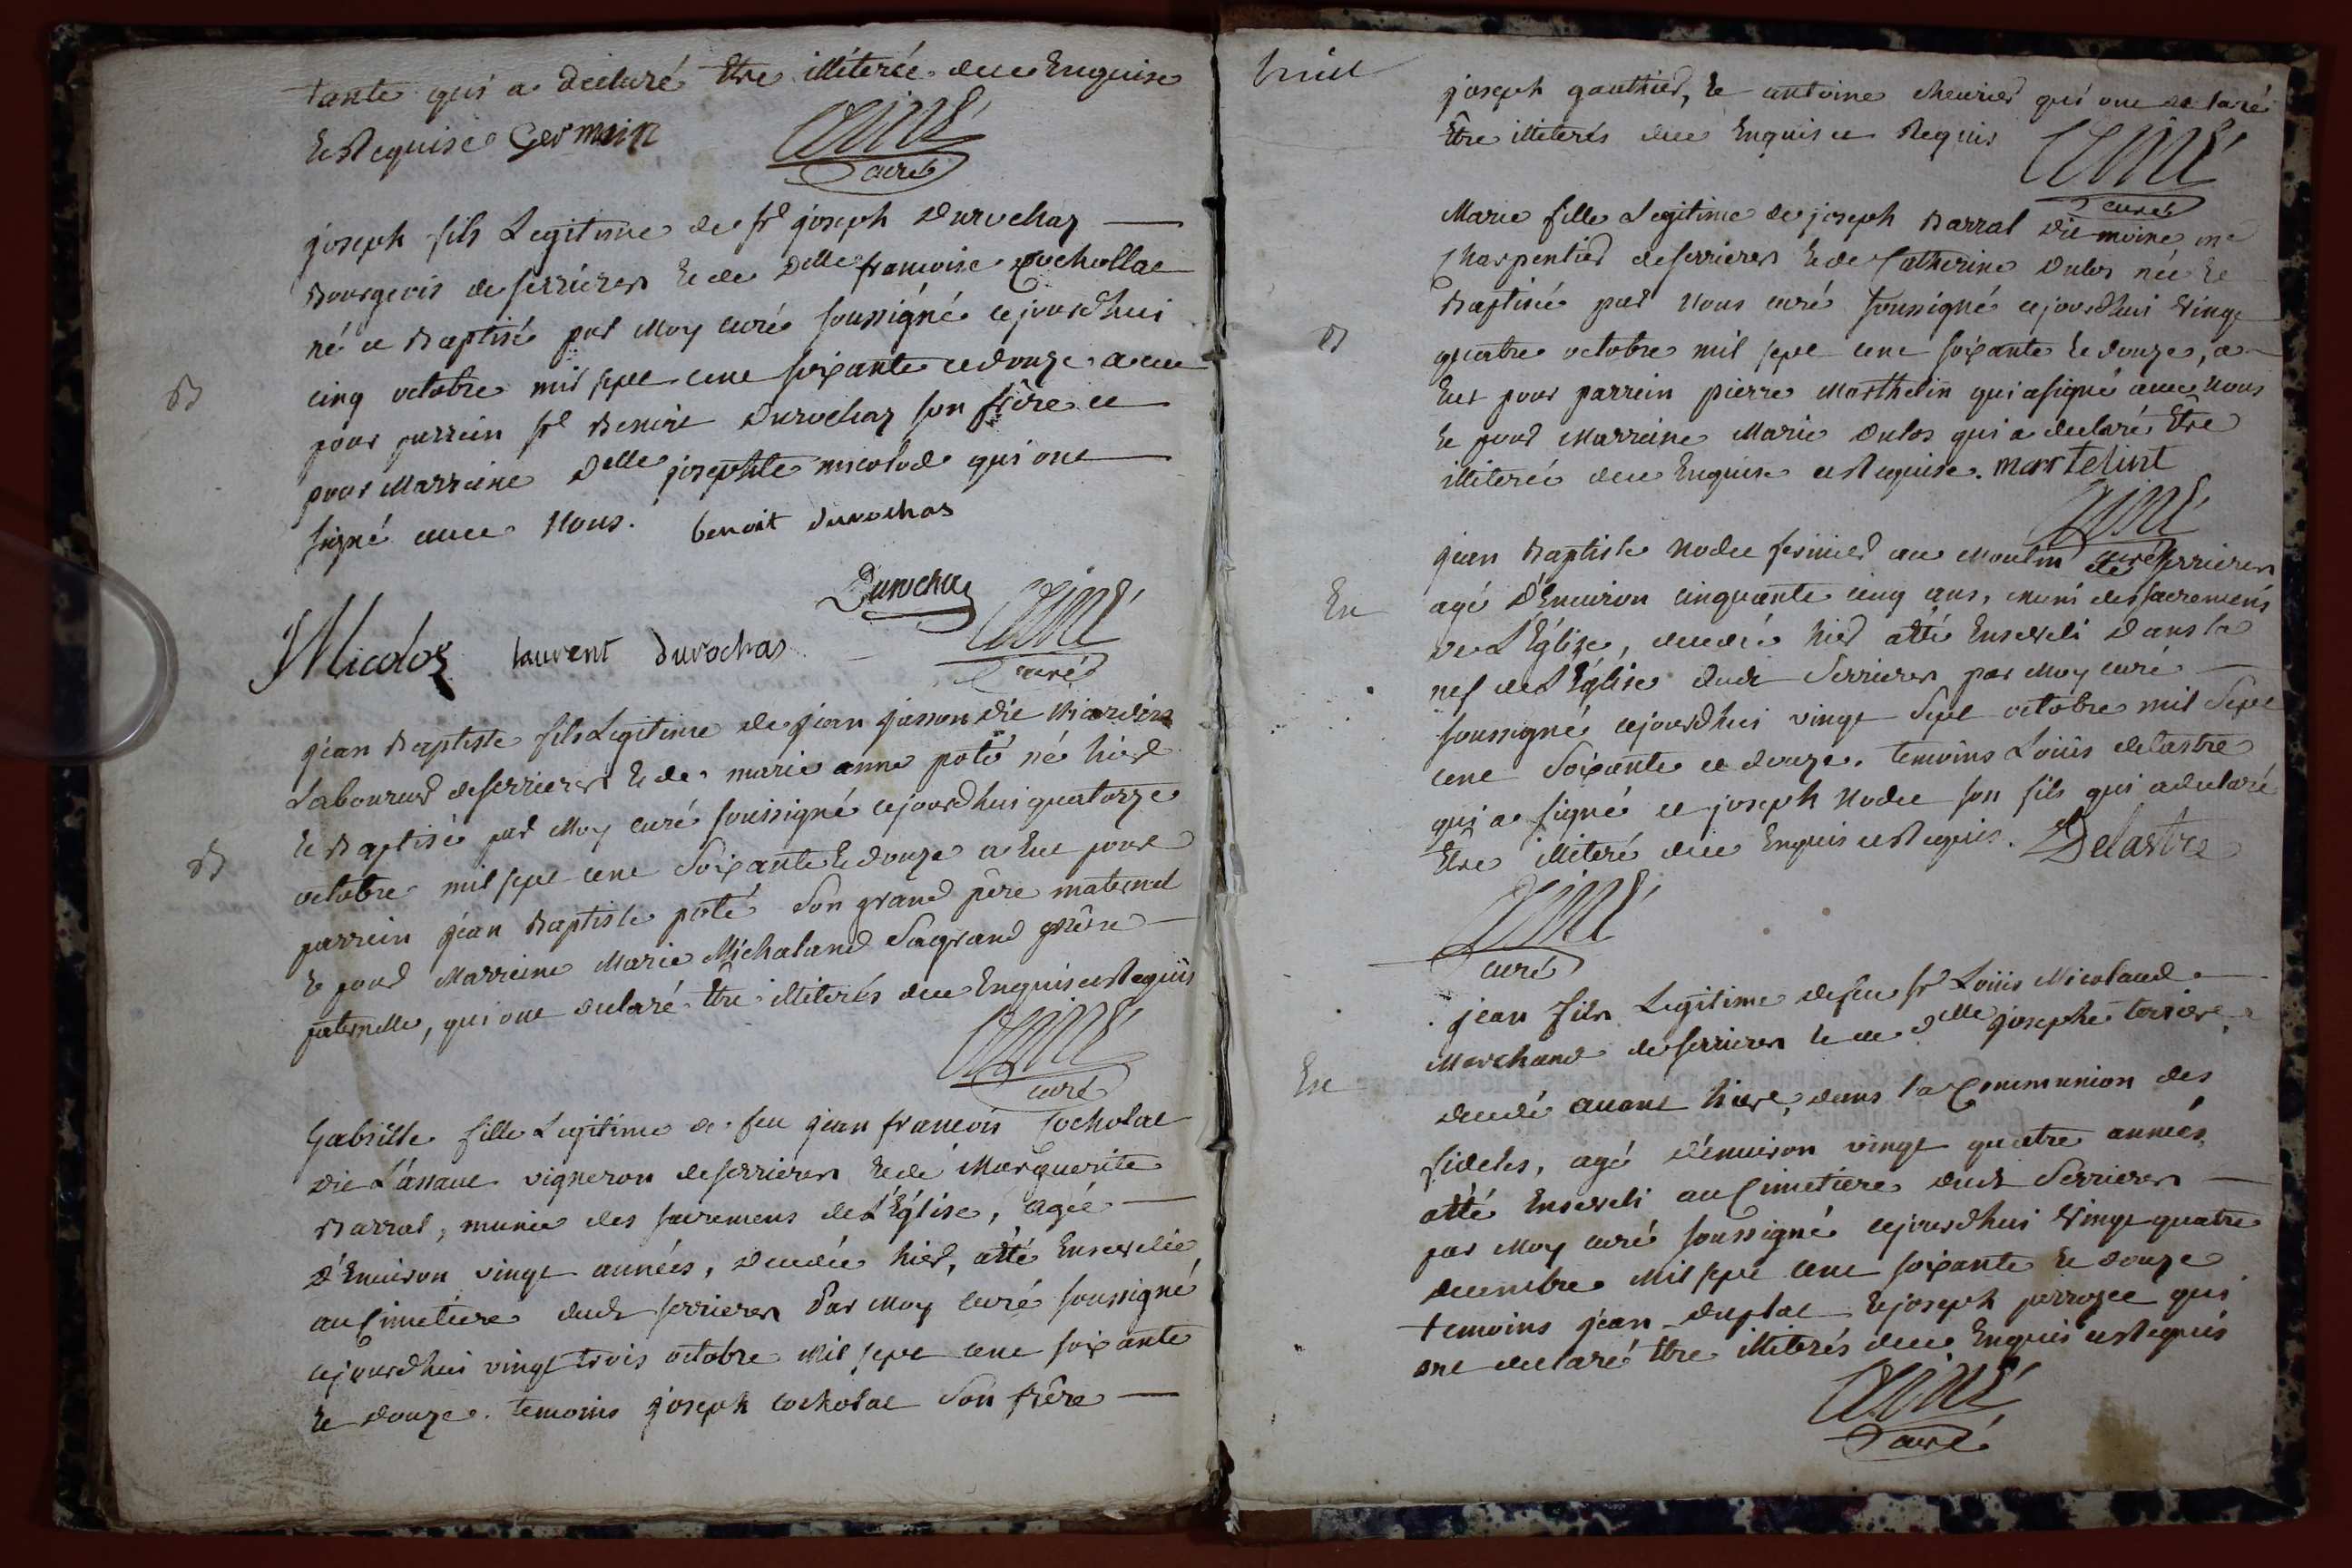 tante qui a declaré Etre illiterée dece Enquise
Et Requise Germain
Aimé
curé
joseph fils Legitime de Sr joseph Durochaz
Bourgeois de serrieres Et de Delle francoise Cochollat
né et Baptisé par Moy curé soussigné cejourdhui
B
cinq octobre mil sept cent soixante et douze a eut
pour parrein Sr Benoit Durochaz son frère et
pour Marreine Delle josephte micolod qui ont
signé avec Nous. benoit durochas
Durochaz
Aimé
JMicoloz laurent durochas
curé
jean Baptiste fils Legitime de jean jasson dit
Laboureur de serrieres Et de marie anne poté né hier
Et Baptisé par Moy curé soussigné cejourdhui quatorze
B
octobre mil sept cent Soixante Et douze a Eut pour
parrein jean Baptiste poté Son grand père maternel
Et pour Marreine Marie Michaland Sa grand mère
paternelle, qui ont declaré Etre illiterés dece Enquis et Requis
Aimé
curé
Gabrielle fille Legitime de feu jean francois Cocholat
dit L'assaut vigneron de serrieres Et de Marguerite
Barral, munie des sacremens de L'Eglise, agée
D'Environ vingt années, decedée hier, a été Ensevelie
au Cimetiere dudt serrieres Par Moy curé soussigné
cejourdhui vingt trois octobre Mil sept cent soixante
Et douze. temoins joseph cocholat Son frère
huit
joseph gauthier, Et antoine cheurier qui ont declaré
Etre illiterés dece Enquis et Requis
Aimé
curé
Marie fille Legitime de joseph Barral dit moine me
Charpentier de serrieres Et de Catherine dulos née Et
Baptisée par Nous curé soussigné cejourdhui vingt
B
quatre octobre mil sept cent soixante Et douze, a
Eut pour parrein pierre Marthelin qui a signé avec Nous
Et pour Marreine Marie dulos qui a declaré Etre
illiterée dece Enquise et Requise. martelint
Aimé
curé
jean Baptiste Nodet fermier au Moulin de serrieres
En
agé D'Environ cinquante cinq ans, muni des sacremens
de L'Eglise, decedé hier a été Enseveli dans la
nef de L'Eglise dudt Serrieres par Moy curé
soussigné cejourdhui vingt Sept octobre mil Sept
cent Soixante et douze. temoins Loüis delastre
qui a signé et joseph Nodet son fils qui a declaré
Etre illiteré dece Enquis et Requis. Delastre
Aimé
curé
jean fils Legitime de feu Sr Loüis Micoland
Marchand de serrieres Et de Delle josephe terriere
En
decedé avant hier, dans la Communion des
fideles, agé d'environ vingt quatre années
a été Enseveli au Cimetiere dudt Serrieres
par Moy curé soussigné cejourdhui vingt quatre
decembre Mil sept cent soixante Et douze
temoins jean duplat Et joseph perrozet qui
ont declaré Etre illiterés dece Enquis et Requis
Aimé
curé